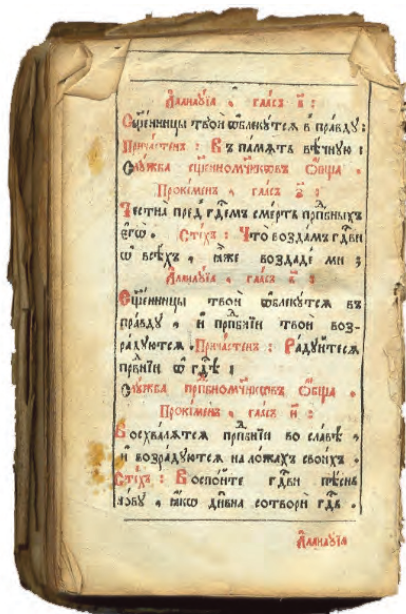 Аллилуїа , гласъ в҃ :
Сщ҃енницы твоѝ ѡблекꙋтсѧ в правдꙋ :
Причастенъ : Въ память вѣчнꙋю :
Слꙋжба сщ҃енномч҃нкѡвъ Ѻбща .
Прокіменъ , гласъ з҃ :
Честна пред гдⷭ҇емъ смерть прпⷣбныхъ
єгѡ̀ . Стіхъ : Что воздамъ гдⷭ҇ви
ѡ всѣхъ , ꙗже воздаде ми ;
Аллилуїа , гласъ в҃ :
Сщ҃енницы твоѝ ѡблекꙋтсѧ въ
правдꙋ , и прпⷣбнїи твоѝ воз-
радꙋютсѧ . Причастенъ : Радꙋйтесѧ
првⷣнїи ѡ гдⷭ҇ѣ :
Слꙋжба прпⷣбномч҃нкѡвъ Ѻбща .
Прокіменъ , гласъ и҃ :
Восхвалѧтсѧ прпⷣбнїи во славѣ ,
и возрадꙋютсѧ на ложахъ своихъ .
Стіхъ : Воспойте гдⷭ҇ви пѣснь
новꙋ , ꙗкѡ дивна сотвори гдⷭ҇ь .
Аллилуїа